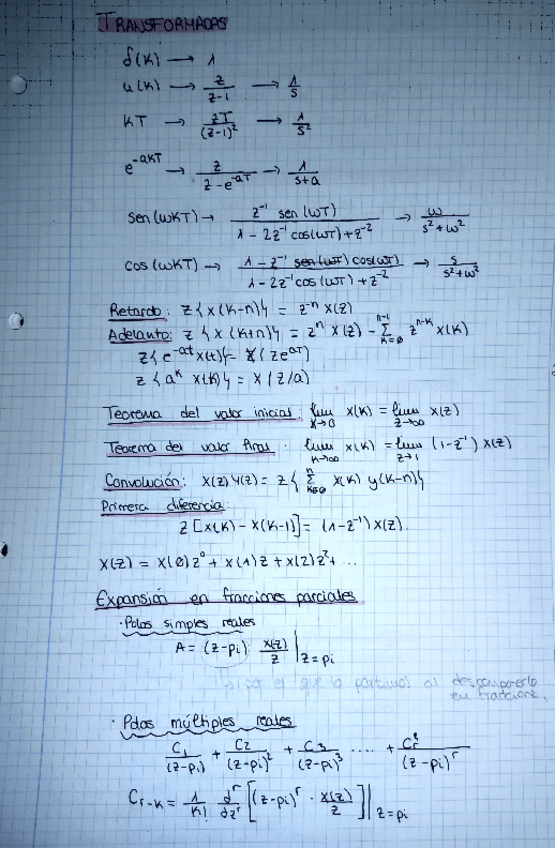 TRANSFORMADAS
δ(k) → 1
u(k) → z/(z-1) → 1/s
kT → zT/(z-1)² → 1/s²
e^-akT → z/(z - e^-aT) → 1/(s+a)
sen(ωkT) → z⁻¹ sen(ωT)/(1 - 2z⁻¹ cos(ωT) + z⁻²) → ω/(s²+ω²)
cos(ωkT) → (1 - z⁻¹ cos(ωT))/(1 - 2z⁻¹ cos(ωT) + z⁻²) → s/(s²+ω²)
Retardo: z{x(k-n)} = z⁻ⁿ x(z)
Adelanto: z{x(k+n)} = zⁿ x(z) - Σ_{k=0}^{n-1} z^{n-k} x(k)
z{e^-at x(t)} = X(ze^{aT})
z{a^k x(k)} = X(z/a)
Teorema del valor inicial: lim_{k→0} x(k) = lim_{z→∞} x(z)
Teorema del valor final: lim_{k→∞} x(k) = lim_{z→1} (1-z⁻¹) x(z)
Convolución: x(z) y(z) = z{Σ_{k=0}^{n} x(k) y(k-n)}
Primera diferencia:
z[x(k) - x(k-1)] = (1-z⁻¹) x(z).
x(z) = x(0)z⁰ + x(1)z + x(2)z² + ...
Expansión en fracciones parciales
· Polos simples reales
A = (z-pi) x(z)/z |z=pi
por el que lo partimos al descomponerlo
en fracciones.
· Polos múltiples reales
C₁/(z-pi) + C₂/(z-pi)² + C₃/(z-pi)³ .... + Cr/(z-pi)^r
C_{r-k} = 1/k! d^r/dz^r [(z-pi)^r · x(z)/z] |z=pi